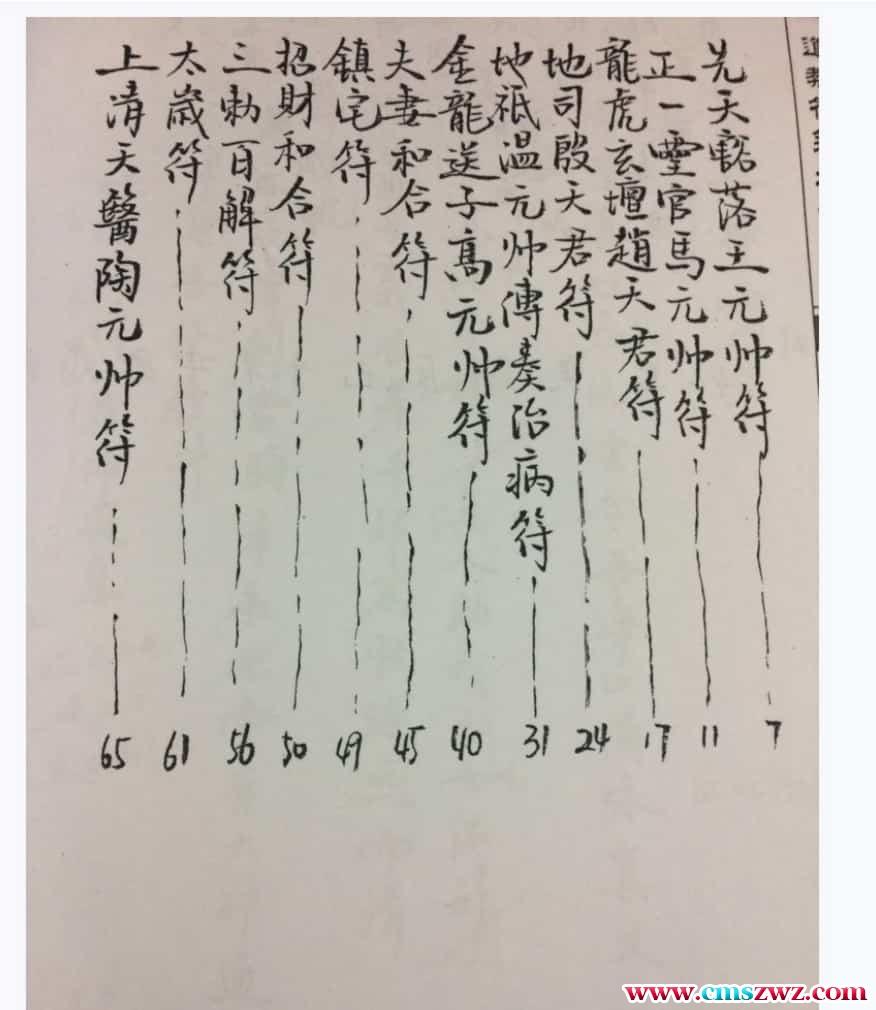 先天豁落王元帅符 7
正一靈官馬元帅符 11
龍虎玄壇趙天君符 17
地司殷天君符 24
地祇温元帅傳奏治病符 31
金龍送子高元帅符 40
夫妻和合符 45
鎮宅符 49
招財和合符 50
三勅百解符 56
太歲符 61
上清天醫陶元帅符 65
www.cmszwz.com